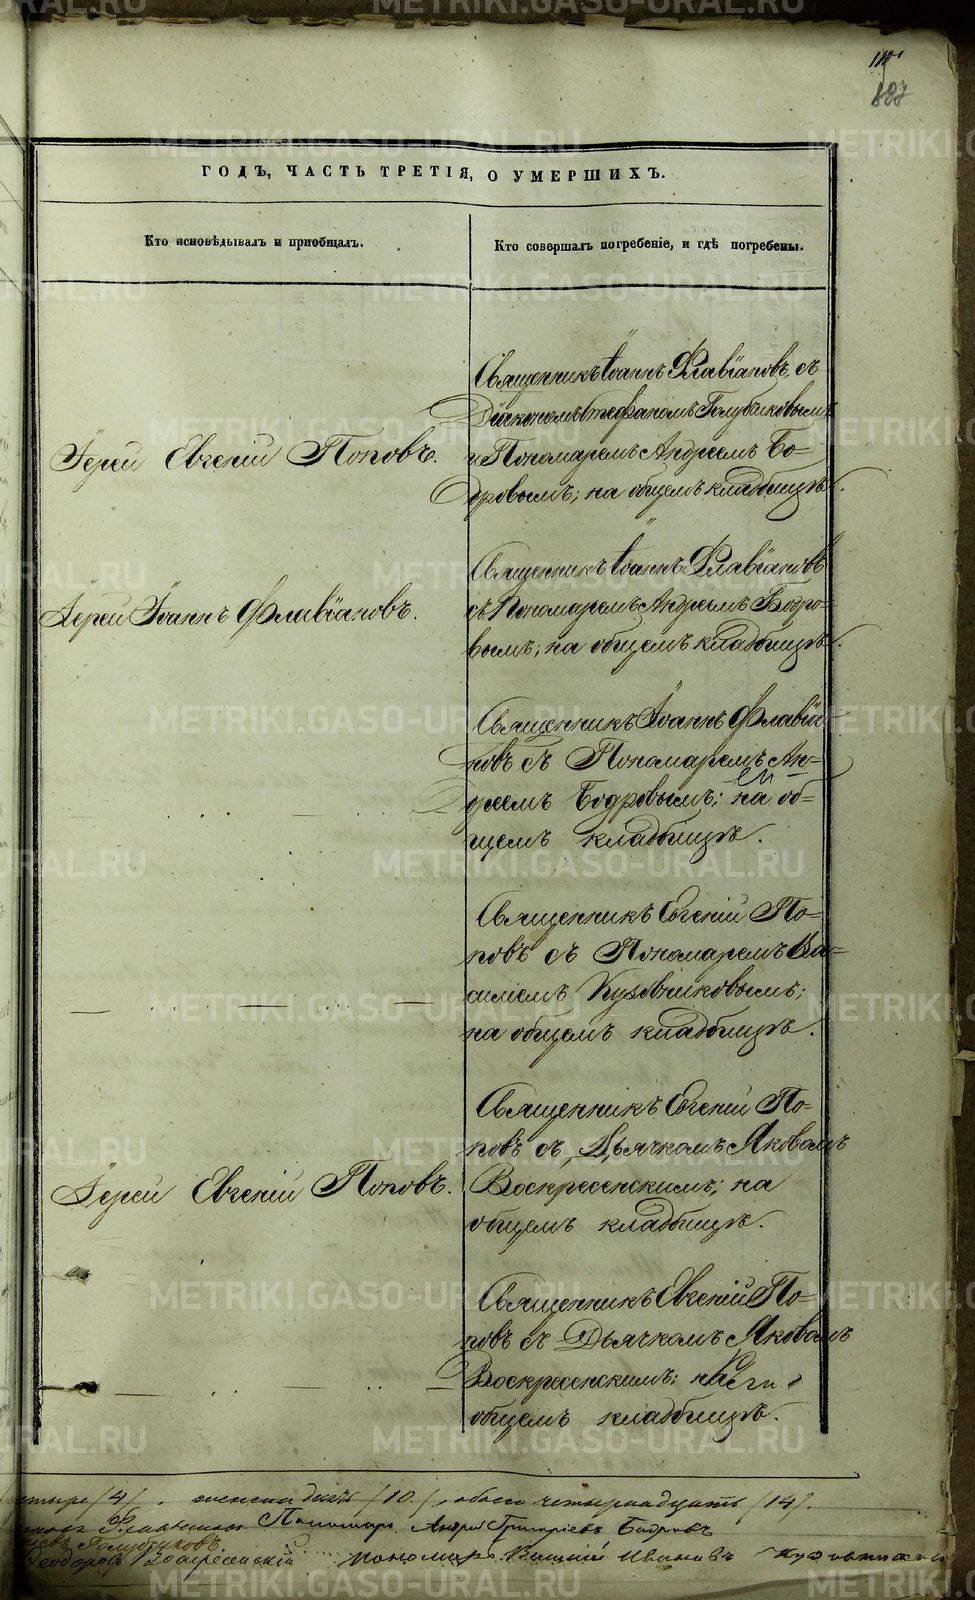 187
ГОДЪ, ЧАСТЬ ТРЕТІЯ, О УМЕРШИХЪ.
Кто исповѣдывалъ и пріобщалъ.
Кто совершалъ погребеніе, и гдѣ погребены.
Іерей Евгеній Поповъ.
Священникъ Іоаннъ Флавіановъ съ
Діакономъ Стефаномъ Голубчиковымъ
и Пономаремъ Андреемъ Бо-
дровымъ; на общемъ кладбищѣ.
Іерей Іоаннъ Флавіановъ.
Священникъ Іоаннъ Флавіановъ
съ Пономаремъ Андреемъ Бодро-
вымъ; на общемъ кладбищѣ.
Священникъ Іоаннъ Флавіа
новъ съ Пономаремъ Ан-
дреемъ Бодровымъ; на об-
щемъ кладбищѣ.
Священникъ Евгеній По-
повъ съ Пономаремъ Ва-
силіемъ Кузовниковымъ;
на общемъ кладбищѣ.
Іерей Евгеній Поповъ.
Священникъ Евгеній По-
повъ съ Дьячкомъ Яковомъ
Воскресенскимъ; на
общемъ кладбищѣ.
Священникъ Евгеній По-
повъ съ Дьячкомъ Яковомъ
Воскресенскимъ; на
общемъ кладбищѣ.
етыре /4/, женска десять /10/, обоего четырнадцать /14/.
Пономарь Андрей Григоріевъ Бодровъ
Голубчиковъ
Воскресенскій Пономарь Василій Ивановъ
METRIKI.GASO-URAL.RU